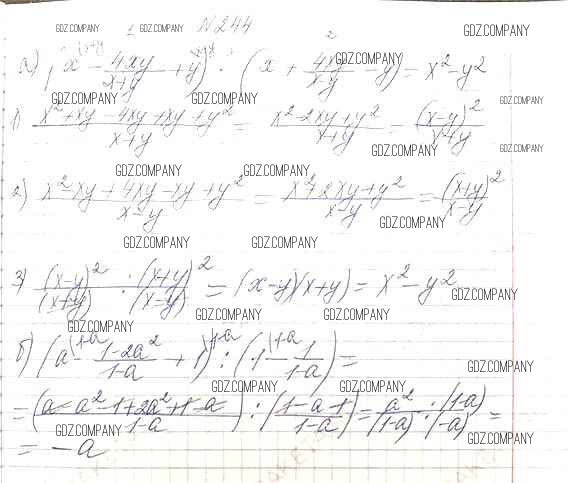 GDZ.COMPANY 1 GDZ.COMPANY N 244 2 GDZ.COMPANY
а) (x - 4xy/(x+y) + y) · (x + 4xy/(x-y) - y) = x² - y²
GDZ.COMPANY GDZ.COMPANY GDZ.COMPANY GDZ.COMPANY
1) (x² + xy - 4xy + xy + y²)/(x+y) = (x² - 2xy + y²)/(x+y) = (x-y)²/(x+y)
GDZ.COMPANY GDZ.COMPANY
GDZ.COMPANY GDZ.COMPANY
2) (x² - xy + 4xy - xy + y²)/(x-y) = (x² + 2xy + y²)/(x-y) = (x+y)²/(x-y)
GDZ.COMPANY
GDZ.COMPANY GDZ.COMPANY
3) (x-y)²/(x+y) · (x+y)²/(x-y) = (x-y)(x+y) = x² - y²
GDZ.COMPANY
GDZ.COMPANY GDZ.COMPANY
б) (a - (1-2a²)/(1-a) + 1) : (1 - 1/(1-a)) =
GDZ.COMPANY
GDZ.COMPANY GDZ.COMPANY
= ((a - a² - 1 + 2a² + 1 - a)/(1-a)) : ((1-a-1)/(1-a)) = (a² · (1-a))/((1-a) · (-a)) =
GDZ.COMPANY GDZ.COMPANY GDZ.COMPANY
= -a